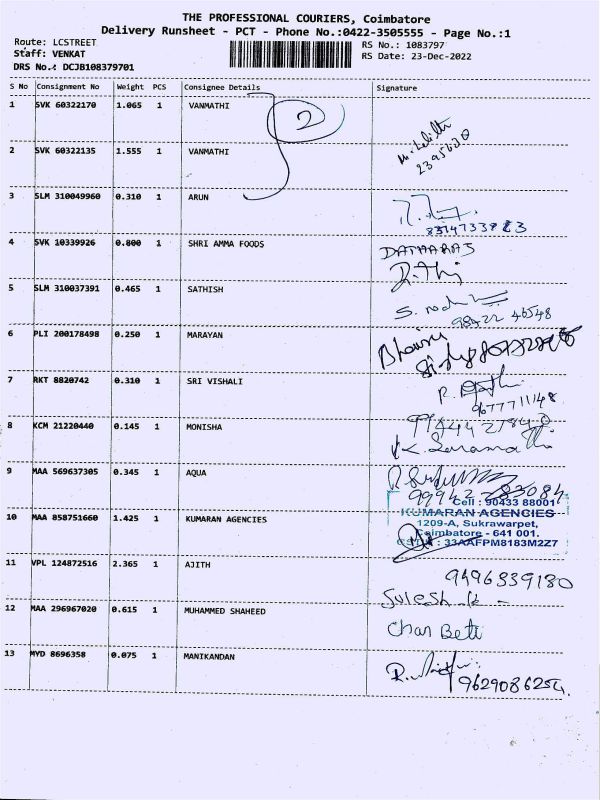 THE PROFESSIONAL COURIERS, Coimbatore
Delivery Runsheet - PCT - Phone No.:0422-3505555 - Page No.:1
Route: LCSTREET
Staff: VENKAT
DRS No.: DCJB108379701
RS No.: 1083797
RS Date: 23-Dec-2022
S No Consignment No Weight PCS Consignee Details Signature
1 SVK 60322170 1.065 1 VANMATHI
2
2 SVK 60322135 1.555 1 VANMATHI
3 SLM 310049960 0.310 1 ARUN
4 SVK 10339926 0.800 1 SHRI AMMA FOODS
5 SLM 310037391 0.465 1 SATHISH
98422 46548
6 PLI 200178498 0.250 1 MARAYAN
7 RKT 8820742 0.310 1 SRI VISHALI
9677711148
8 KCM 21220440 0.145 1 MONISHA
9 MAA 569637305 0.345 1 AQUA
99942 83084
Cell : 90433 88001
KUMARAN AGENCIES
1209-A, Sukrawarpet,
Coimbatore - 641 001.
GSTIN : 33AAFPM8183M2Z7
10 MAA 858751660 1.425 1 KUMARAN AGENCIES
11 VPL 124872516 2.365 1 AJITH
9496339180
Suresh
12 MAA 296967020 0.615 1 MUHAMMED SHAHEED
Chan Beti
13 MYD 8696358 0.075 1 MANIKANDAN
9629086254